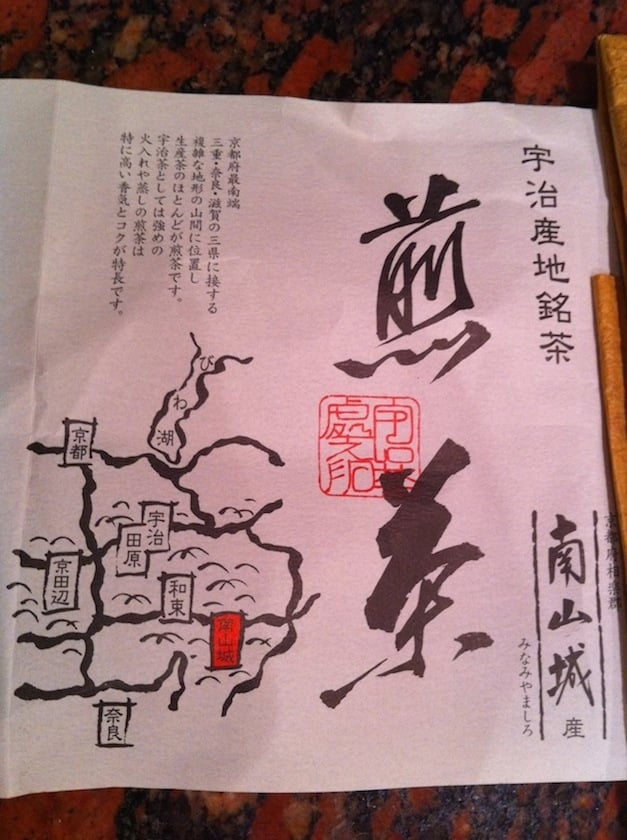 宇治産地銘茶
煎茶
京都府相楽郡
南山城産
みなみやましろ
京都府最南端
三重・奈良・滋賀の三県に接する
複雑な地形の山間に位置し
生産茶のほとんどが煎茶です。
宇治茶としては強めの
火入れや蒸しの煎茶は
特に高い香気とコクが特長です。
びわ湖
京都
宇治
田原
京田辺
和束
南山城
奈良